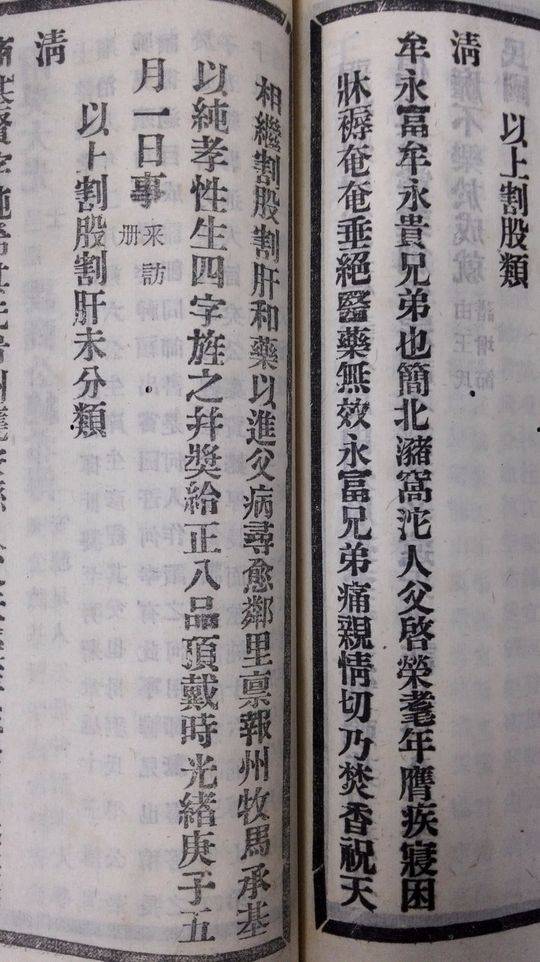 以上割股類
清
牟永富牟永貴兄弟也簡北瀦窩沱人父啓榮耄年膺疾寢困
牀褥奄奄垂絕醫藥無效永富兄弟痛親情切乃焚香祝天
相繼割股割肝和藥以進父病尋愈鄰里稟報州牧馬承基
以純孝性生四字旌之幷獎給正八品頂戴時光緒庚子五
月一日事采訪
册
以上割股割肝未分類
清